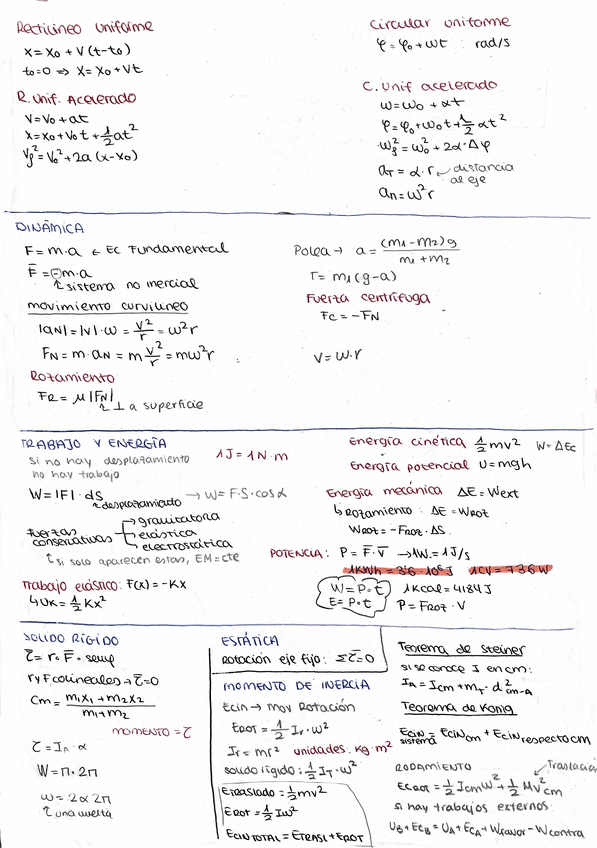 Rectilíneo uniforme
x = x₀ + v (t-t₀)
t₀=0 ⇒ x = x₀ + vt
R. Unif. Acelerado
v = v₀ + at
x = x₀ + v₀t + 1/2 at²
v_f² = v₀² + 2a (x-x₀)
Circular uniforme
φ = φ₀ + ωt rad/s
C. Unif acelerado
ω = ω₀ + αt
φ = φ₀ + ω₀t + 1/2 αt²
ω_f² = ω₀² + 2α·Δφ
a_T = α·r ← distancia
al eje
a_n = ω²r
DINÁMICA
F = m·a ← Ec Fundamental
F̄ = ⊖m·a
↳ sistema no inercial
movimiento curvilíneo
|aN| = |v|·ω = v²/r = ω²r
F_N = m·a_N = m v²/r = mω²r
Rozamiento
F_R = μ|F_N|
↳ ⊥ a superficie
Polea → a = (m₁-m₂)g / m₁+m₂
T = m₁(g-a)
Fuerza centrífuga
Fc = -F_N
v = ω·r
TRABAJO Y ENERGÍA
si no hay desplazamiento
no hay trabajo
1J = 1N·m
W = |F|·ds → W = F·S·cosα
↳ desplazamiento
fuerzas
conservativas
→ gravitatoria
→ elástica
→ electrostática
↳ si solo aparecen estas, EM=cte
Trabajo elástico: F(x) = -Kx
↳ UK = 1/2 Kx²
Energía cinética 1/2 mv² W = ΔEc
Energía potencial U = mgh
Energía mecánica ΔE = Wext
↳ Rozamiento: ΔE = W_ROZ
W_ROZ = -F_ROZ·ΔS
POTENCIA: P = F̄·v̄ → 1W = 1J/s
1KWh = 3'6·10⁶J 1CV = 736W
W = P·t
E = P·t
1Kcal = 4184J
P = F_ROZ·V
SOLIDO RÍGIDO
τ̄ = r·F̄·senφ
r y F colineales → τ̄=0
Cm = m₁x₁ + m₂x₂ / m₁+m₂
MOMENTO = τ
τ = I_A·α
W = n·2π
ω = 2α 2π
↳ una vuelta
ESTÁTICA
Rotación eje fijo: Στ̄=0
MOMENTO DE INERCIA
Ecin → mov Rotación
E_ROT = 1/2 I_r·ω²
I_r = mr² unidades: kg·m²
solido rígido: 1/2 I_T·ω²
Etraslado = 1/2 mv²
Erot = 1/2 Iω²
E_CIN TOTAL = E_TRASL + E_ROT
Teorema de Steiner
si se conoce I en cm:
I_A = I_cm + m_T·d²_cm-A
Teorema de Konig
E_CIN sistema = E_CIN cm + E_CIN respecto CM
RODAMIENTO
Traslación
Ec_ROT = 1/2 I_cm ω² + 1/2 Mv²cm
si hay trabajos externos
U_B + Ec_B = U_A + Ec_A + W_favor - W_contra